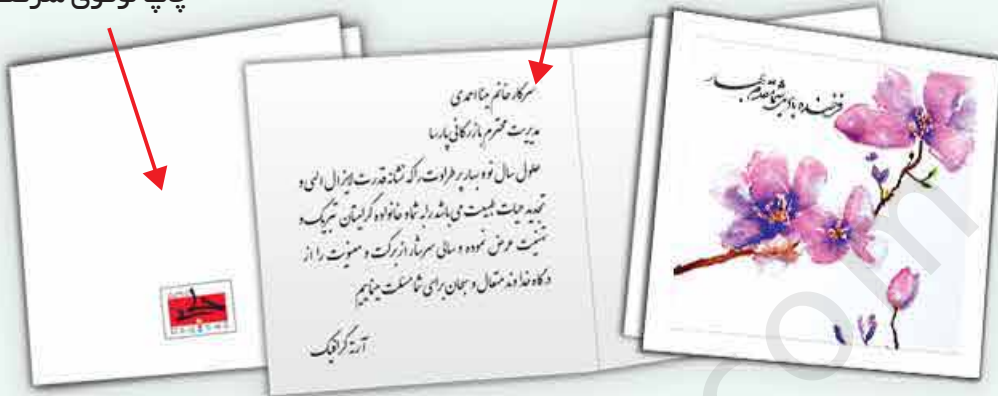 چاپ لوگوی
سرکار خانم مینا احمدی
مدیریت محترم بازرگانی پارسا
حلول سال نو و بهار پر طراوت را که نشانه قدرت لایزال الهی و
تجدید حیات طبیعت می باشد را به شما و خانواده گرامیتان تبریک و
تهنیت عرض نموده و سالی سرشار از برکت و معنویت را از
درگاه خداوند متعال و سبحان برای شما مسئلت مینماییم
آرته گرافیک
فرخنده باد بر شما مقدم بهار
com